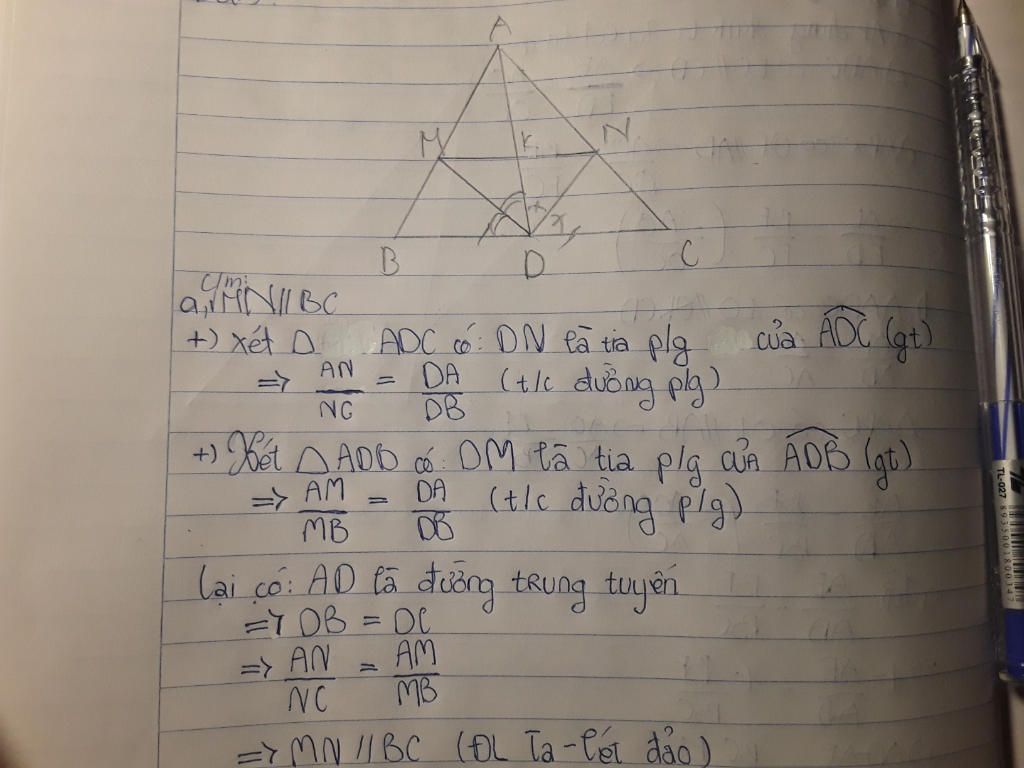 A
M
K
N
B
D
C
a, c/m: MN // BC
+) Xét Δ ADC có: DN là tia p/g của ADC (gt)
=> AN/NC = DA/DB (t/c đường p/g)
+) Xét Δ ADB có: DM là tia p/g của ADB (gt)
=> AM/MB = DA/DB (t/c đường p/g)
Lại có: AD là đường trung tuyến
=> DB = DC
=> AN/NC = AM/MB
=> MN // BC (ĐL Ta-lét đảo)
TL-027